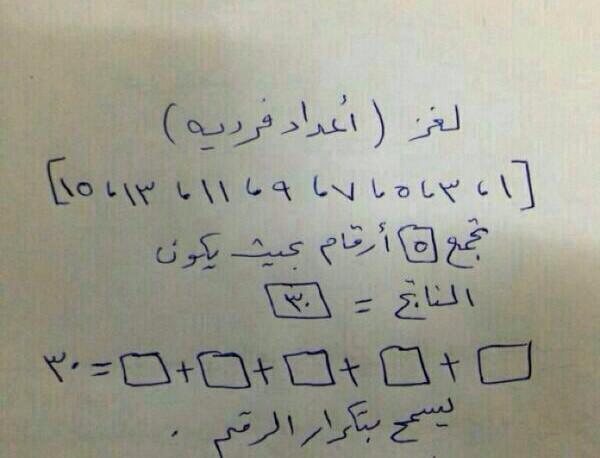 لغز (أعداد فرديه)
[١ ، ٣ ، ٥ ، ٧ ، ٩ ، ١١ ، ١٣ ، ١٥]
تجمع ٥ أرقام بحيث يكون
الناتج = ٣٠
□ + □ + □ + □ + □ = ٣٠
يسمح بتكرار الرقم .